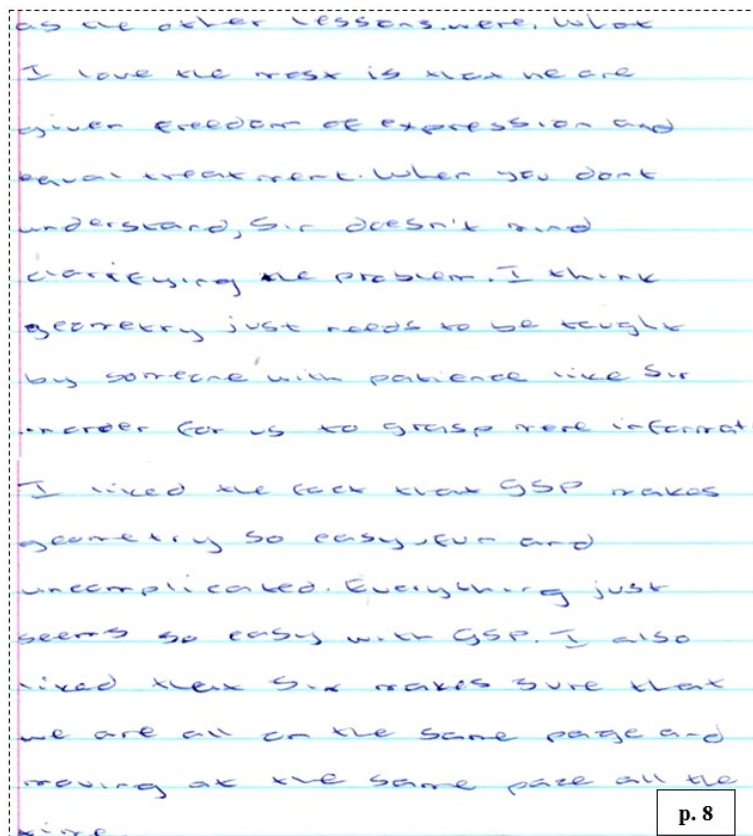 as the other lessons were. What
I love the most is that we are
given freedom of expression and
equal treatment. When you dont
understand, Sir doesn't mind
clarifying the problem. I think
geometry just needs to be taught
by someone with patience like Sir
inorder for us to grasp more informat
I liked the fact that GSP makes
geometry so easy, fun and
uncomplicated. Everything just
seems so easy with GSP. I also
liked that Sir makes sure that
we are all on the same page and
moving at the same pace all the
time.
p. 8